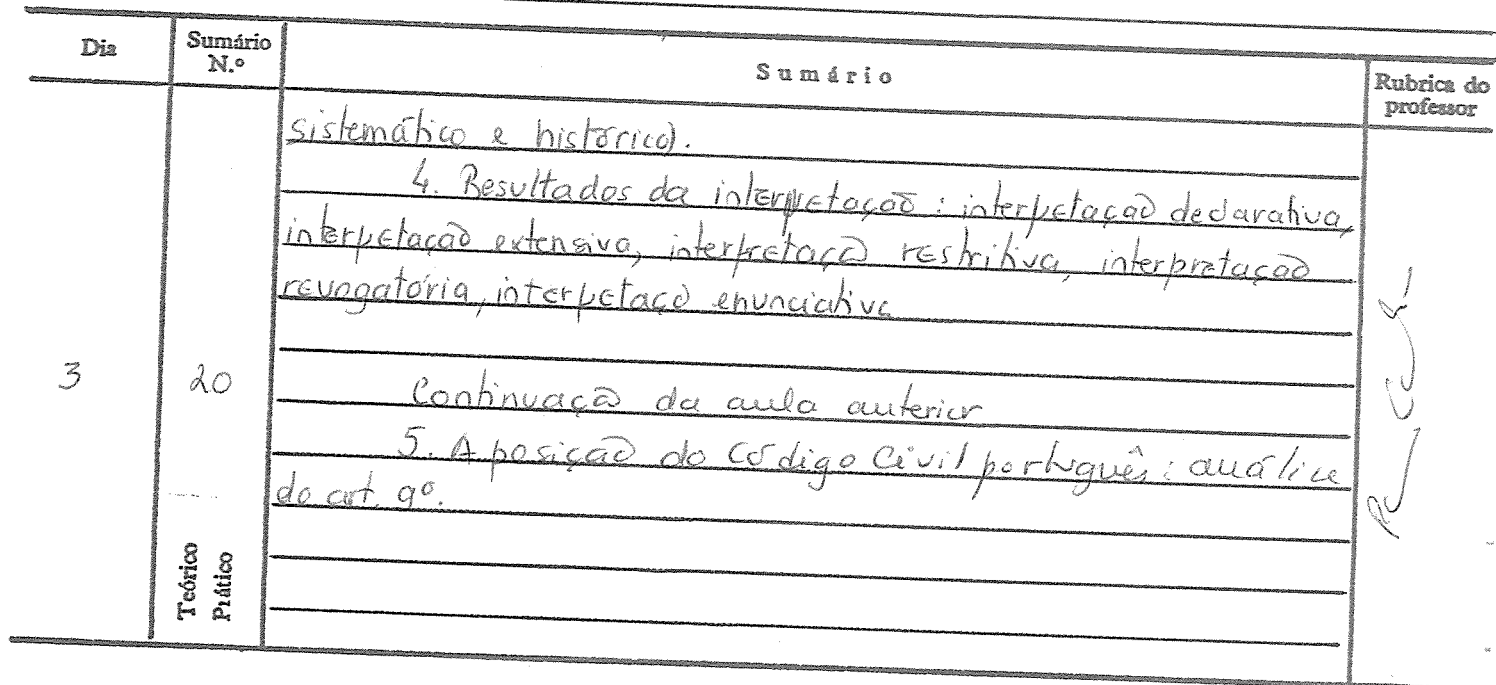 Dia Sumário N.º Sumário Rubrica do professor
sistemático e histórico).
4. Resultados da interpretação: interpretação declarativa,
interpretação extensiva, interpretação restritiva, interpretação
revogatória, interpretação enunciativa
3 20 Continuação da aula anterior
5. A posição do Código Civil português: análise
do art. 9º.
Teórico
Prático